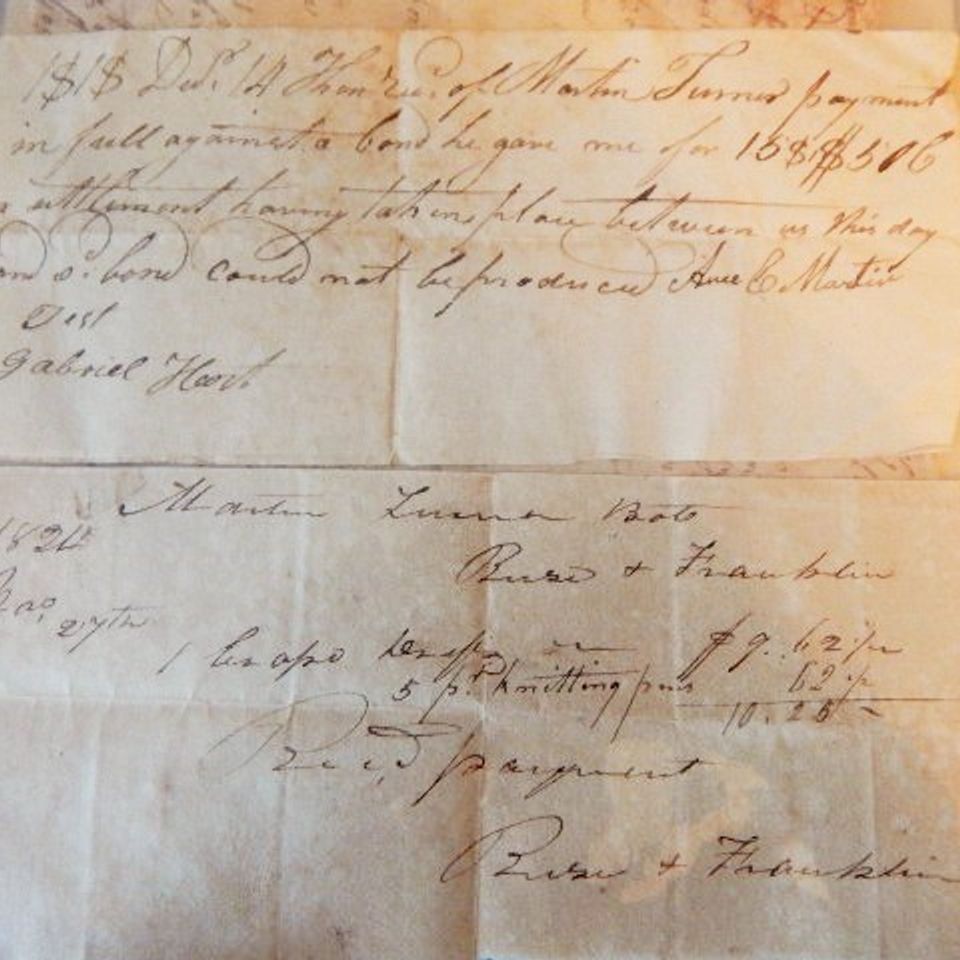 Decr. 14 Then Recd. of Martin Turner payment
in full against a bond he gave me for
settlement having taken place between us this day
and sd. bond could not be produced Martin
Test
Gabriel
Martin Turner Bot
1824
& Franklin
27th
1 Crape $9.62½
5 pr. knitting pins 62½
10.25
Recd payment
& Franklin